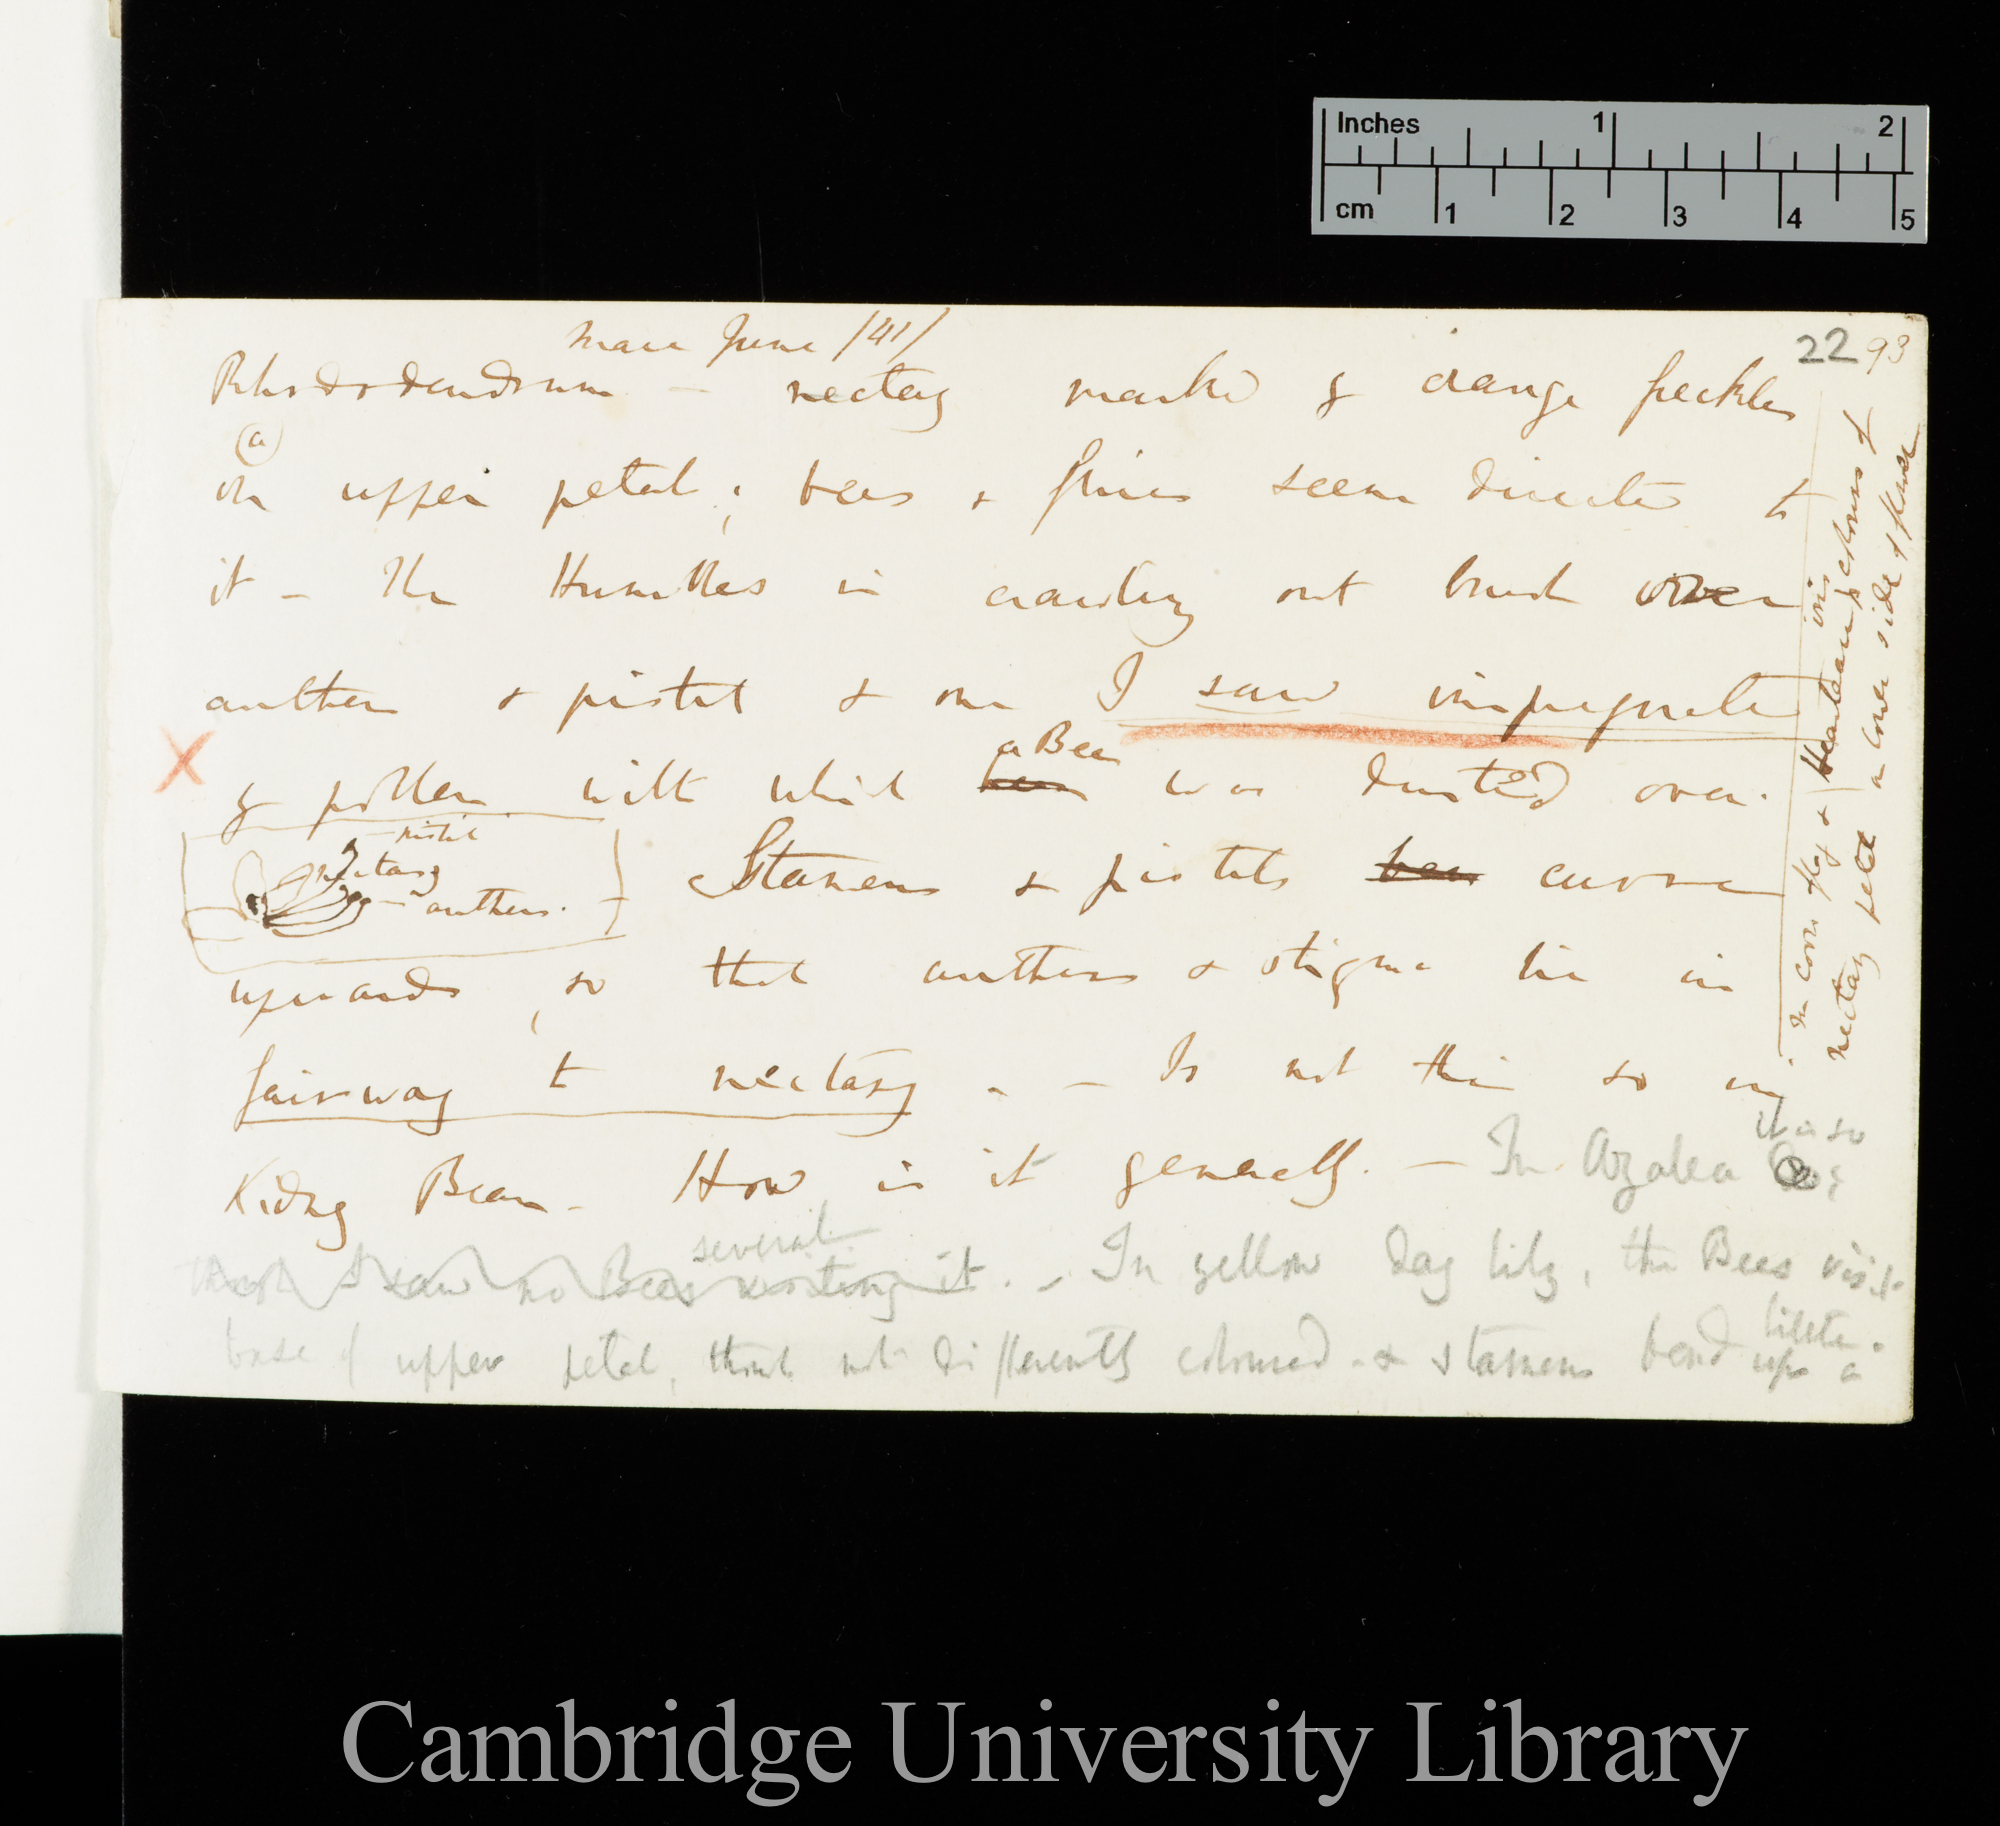 Inches 1 2
cm 1 2 3 4 5
22 93
Maer June /41/
Rhododendrum — nectary marked by orange freckles
(a)
on upper petal; bees & flies seem directed to
it — The Humbles in crawling out brush over
anther & pistil & one I saw impregnate
X
by pollen with which bee a Bee was dusted over.
pistil
nectary
anthers.
Stamens & pistils been curve
upwards, so that anthers & stigma lie in
fairway to nectary. — Is not this so in
Kidney Bean. How is it generally. — In Azalea it is so
though I saw no Bees several visiting it. — In yellow day lily, the Bees visit
base of upper petal, though not differently coloured. & stamens bend up a little.
In corn flag & Heartsease
nectary petal on lower side of flower
Cambridge University Library